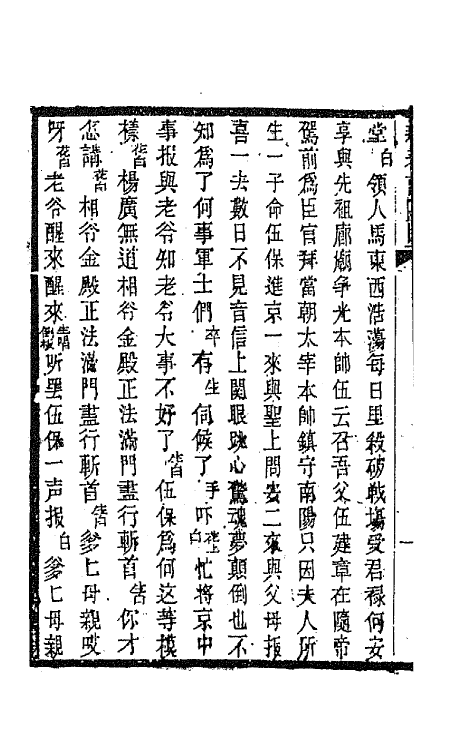 堂白領人馬東西浩蕩每日里殺破戰塲受君祿何安
享與先祖廊廟争光本帥伍云召吾父伍建章在隨帝
駕前爲臣官拜當朝太宰本帥鎮守南陽只因夫人所
生一子命伍保進京一來與聖上問安二來與父母报
喜一去數日不見音信上関眼跳心驚魂夢顛倒也不
知爲了何事軍士們卒有生伺候了手吓生白忙將京中
事报與老爷知老爷大事不好了昔伍保爲何这等模
樣昔楊廣無道相爷金殿正法滿門盡行斬首昔你才
怎講昔相爷金殿正法滿門盡行斬首昔爹匕母親哎
呀昔老爷醒來醒來昔倒板听罢伍保一声报白爹匕母親